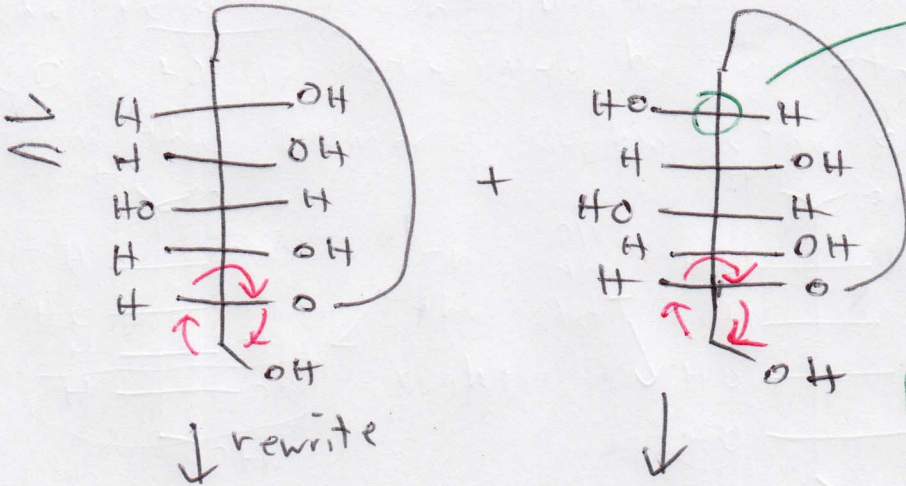 H OH HO H
H OH H OH
HO H + HO H
H OH H OH
H O H O
OH OH
rewrite